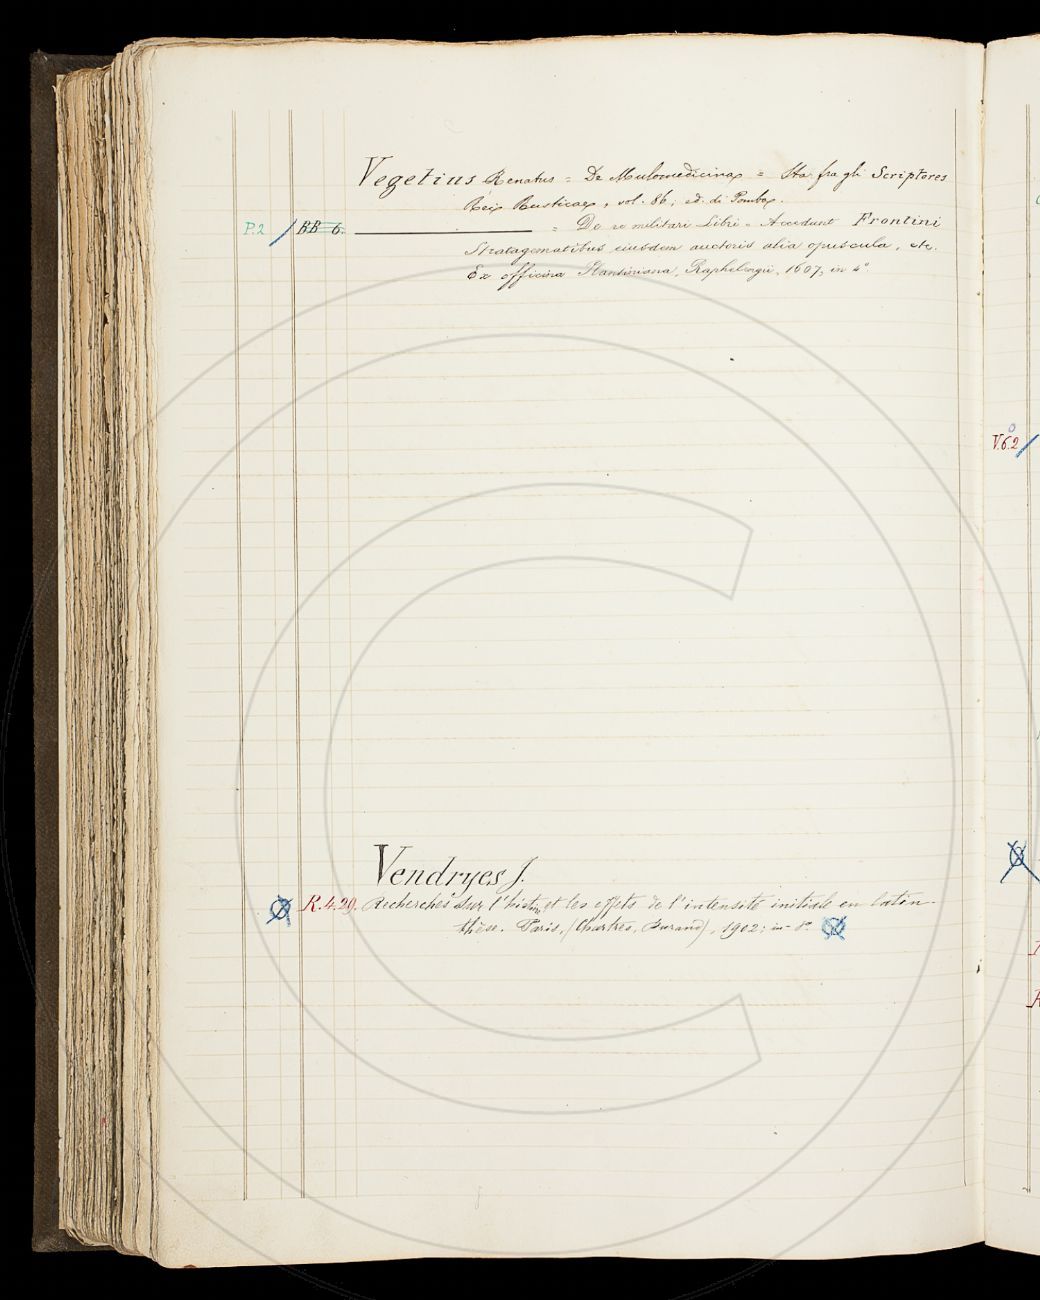 Vegetius Renatus = De Mulomedicina = Sta fra gli Scriptores
Rei Rusticae, vol. 86, ed. di Pomba.
P.2 / BB 6. ——— = De re militari Libri = Accedunt Frontini
Stratagematibus eiusdem auctoris alia opuscula, etc.
Ex officina Plantiniana, Raphelengii, 1607, in 4°
V.6.2
Vendryes J.
R.4.29. Recherches sur l'hist.re et les effets de l'intensité initiale en latin.
thèse. Paris, (Chartres, Durand), 1902; in-8°